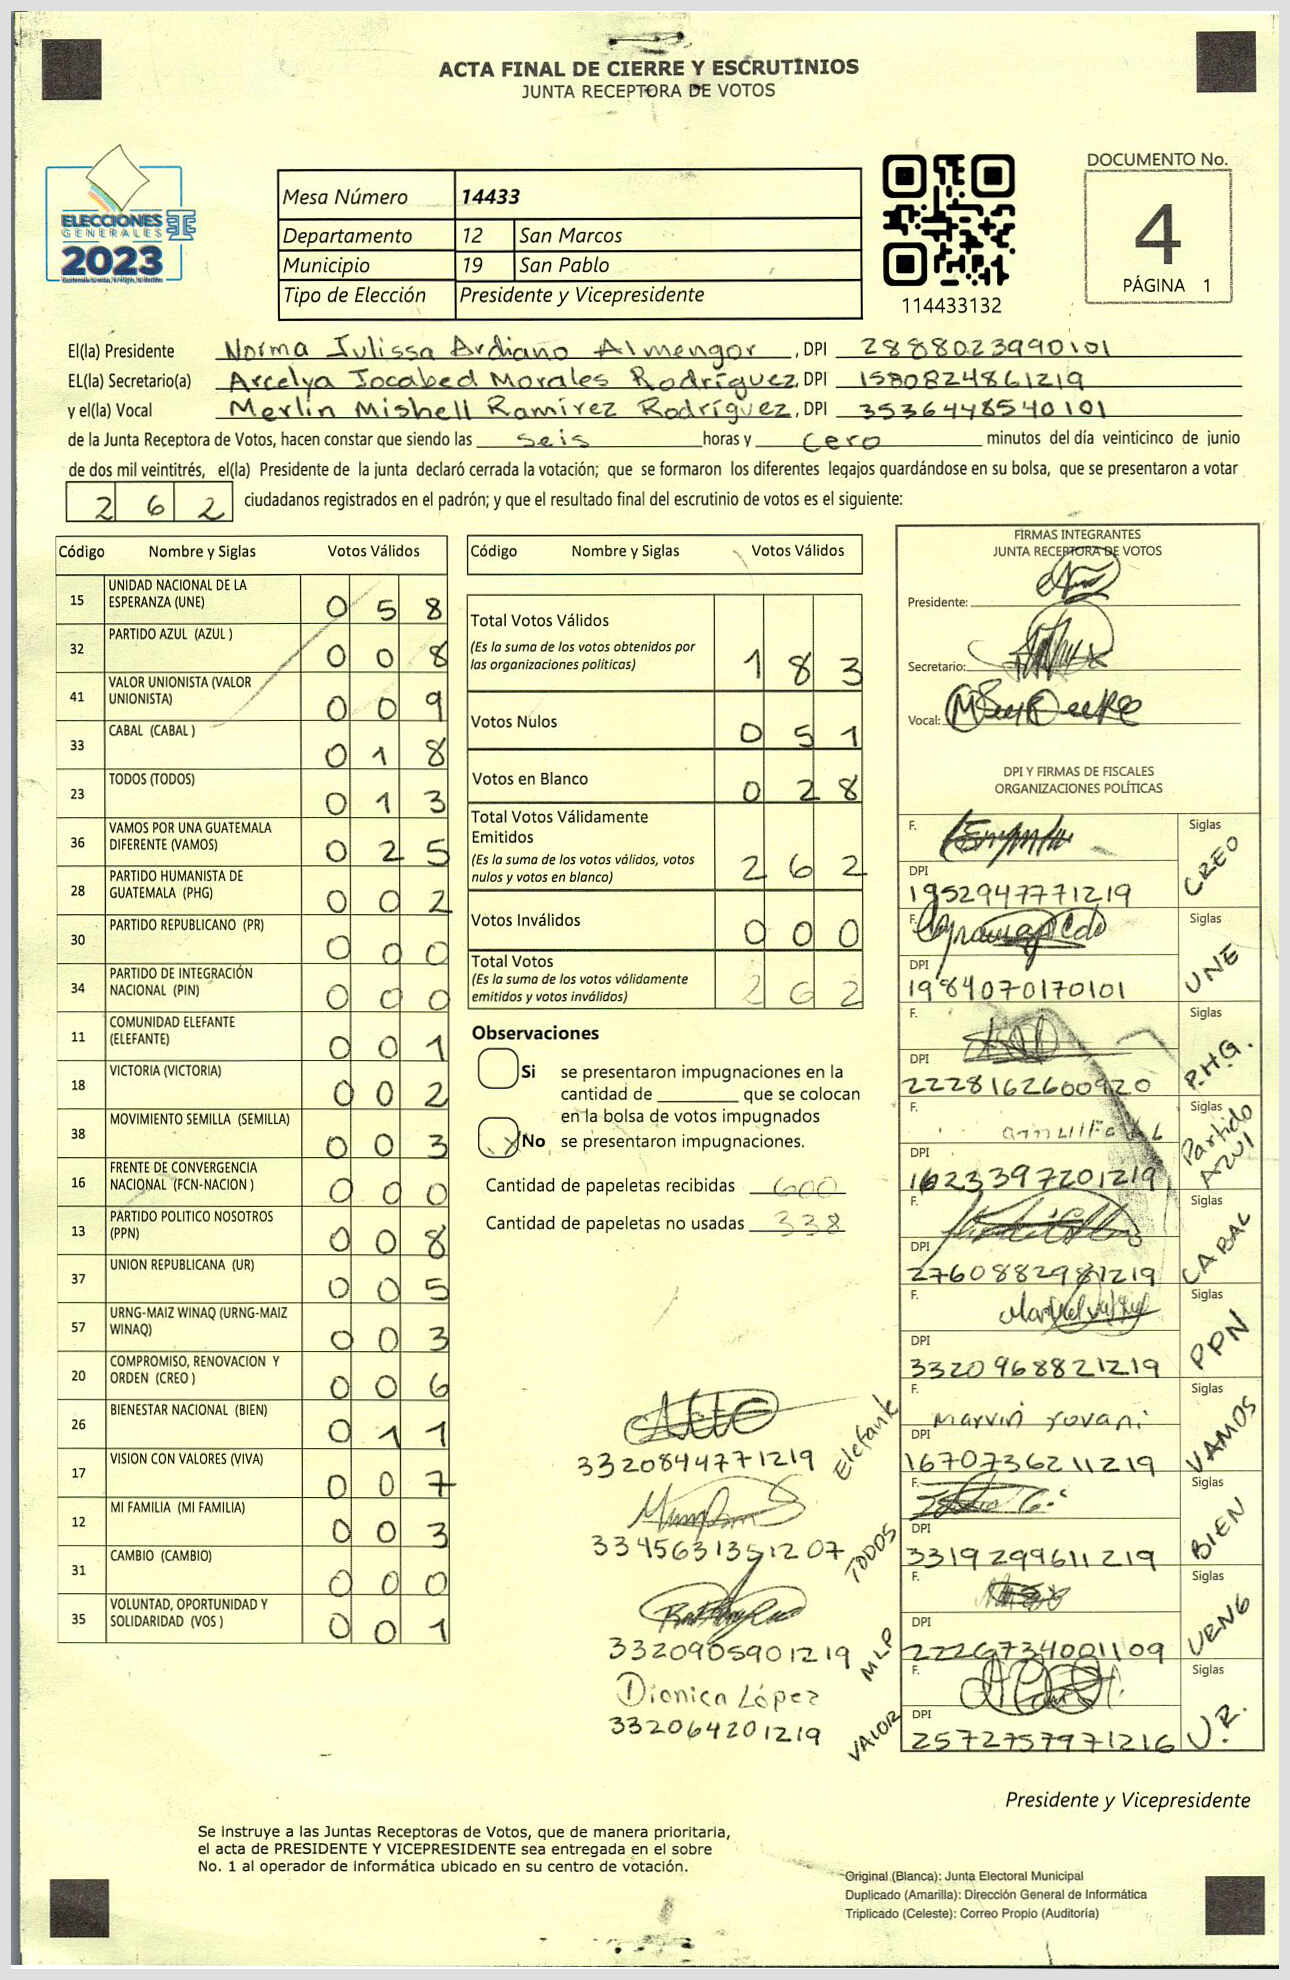 ACTA FINAL DE CIERRE Y ESCRUTINIOS
JUNTA RECEPTORA DE VOTOS
ELECCIONES
GENERALES
2023
Mesa Número 14433
Departamento 12 San Marcos
Municipio 19 San Pablo
Tipo de Elección Presidente y Vicepresidente
114433132
DOCUMENTO No.
4
PÁGINA 1
El(la) Presidente Norma Julissa Ardiano Almengor, DPI 2888023990101
EL(la) Secretario(a) Arcelya Jocabed Morales Rodríguez, DPI 1580824861219
y el(la) Vocal Merlin Mishell Ramírez Rodríguez, DPI 3536448540101
de la Junta Receptora de Votos, hacen constar que siendo las seis horas y cero minutos del día veinticinco de junio
de dos mil veintitrés, el(la) Presidente de la junta declaró cerrada la votación; que se formaron los diferentes legajos guardándose en su bolsa, que se presentaron a votar
262 ciudadanos registrados en el padrón; y que el resultado final del escrutinio de votos es el siguiente:
Código Nombre y Siglas Votos Válidos
15 UNIDAD NACIONAL DE LA ESPERANZA (UNE) 058
32 PARTIDO AZUL (AZUL ) 008
41 VALOR UNIONISTA (VALOR UNIONISTA) 009
33 CABAL (CABAL ) 018
23 TODOS (TODOS) 013
36 VAMOS POR UNA GUATEMALA DIFERENTE (VAMOS) 025
28 PARTIDO HUMANISTA DE GUATEMALA (PHG) 002
30 PARTIDO REPUBLICANO (PR) 000
34 PARTIDO DE INTEGRACIÓN NACIONAL (PIN) 000
11 COMUNIDAD ELEFANTE (ELEFANTE) 001
18 VICTORIA (VICTORIA) 002
38 MOVIMIENTO SEMILLA (SEMILLA) 003
16 FRENTE DE CONVERGENCIA NACIONAL (FCN-NACION ) 000
13 PARTIDO POLITICO NOSOTROS (PPN) 008
37 UNION REPUBLICANA (UR) 005
57 URNG-MAIZ WINAQ (URNG-MAIZ WINAQ) 003
20 COMPROMISO, RENOVACION Y ORDEN (CREO ) 006
26 BIENESTAR NACIONAL (BIEN) 011
17 VISION CON VALORES (VIVA) 007
12 MI FAMILIA (MI FAMILIA) 003
31 CAMBIO (CAMBIO) 000
35 VOLUNTAD, OPORTUNIDAD Y SOLIDARIDAD (VOS ) 001
Código Nombre y Siglas Votos Válidos
Total Votos Válidos
(Es la suma de los votos obtenidos por las organizaciones políticas) 183
Votos Nulos 051
Votos en Blanco 028
Total Votos Válidamente Emitidos
(Es la suma de los votos válidos, votos nulos y votos en blanco) 262
Votos Inválidos 000
Total Votos
(Es la suma de los votos válidamente emitidos y votos inválidos) 262
Observaciones
Si se presentaron impugnaciones en la
cantidad de ________ que se colocan
en la bolsa de votos impugnados
X No se presentaron impugnaciones.
Cantidad de papeletas recibidas 600
Cantidad de papeletas no usadas 338
3320844771219 Elefante
3345631351207 TODOS
3320905901219 MLP
Dionica López
332064201219 VALOR
FIRMAS INTEGRANTES
JUNTA RECEPTORA DE VOTOS
Presidente:
Secretario:
Vocal:
DPI Y FIRMAS DE FISCALES
ORGANIZACIONES POLÍTICAS
F. Siglas CREO
DPI 1952947771219
F. Siglas UNE
DPI 1984070170101
F. Siglas P.H.G.
DPI 2228162600920
F. Siglas Partido AZUl
DPI 1623397201219
F. Siglas CABAL
DPI 2760882981219
F. Siglas PPN
DPI 3320968821219
F. Marvin Yovani Siglas VAMOS
DPI 1670736211219
F. Siglas BIEN
DPI 3319299611219
F. Siglas URNG
DPI 2226734001109
F. Siglas U.R.
DPI 2572757971216
Presidente y Vicepresidente
Se instruye a las Juntas Receptoras de Votos, que de manera prioritaria,
el acta de PRESIDENTE Y VICEPRESIDENTE sea entregada en el sobre
No. 1 al operador de informática ubicado en su centro de votación.
Original (Blanca): Junta Electoral Municipal
Duplicado (Amarilla): Dirección General de Informática
Triplicado (Celeste): Correo Propio (Auditoría)